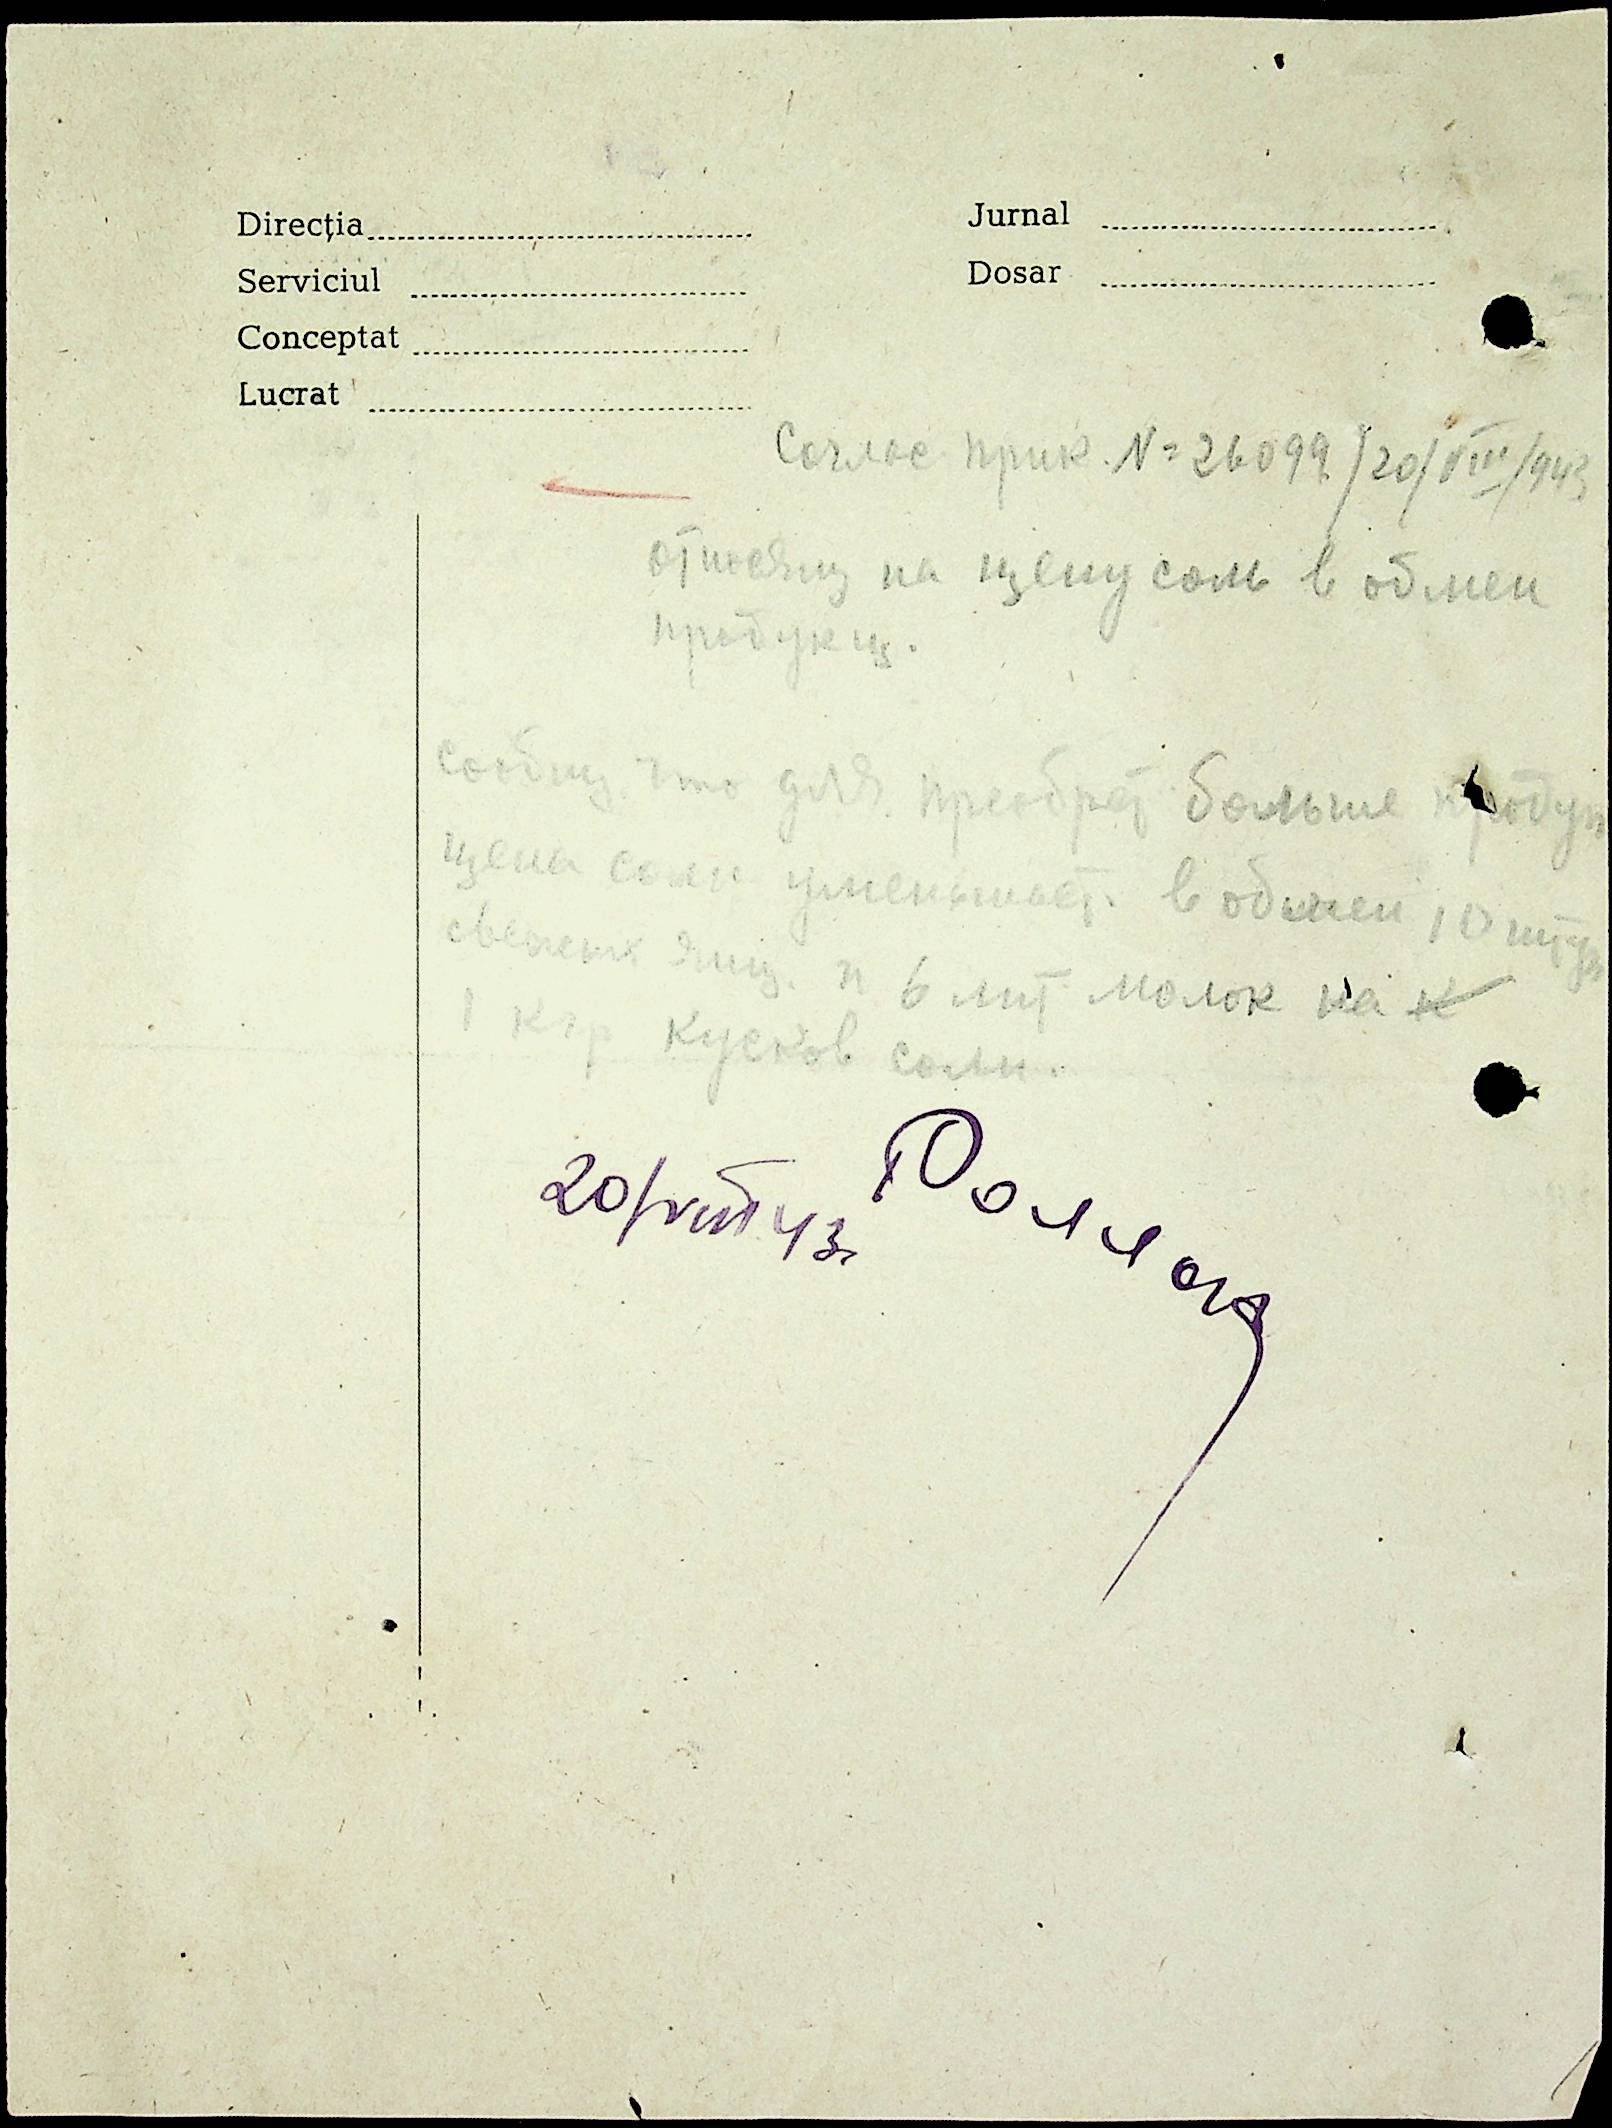 Direcția
Serviciul
Conceptat
Lucrat
Jurnal
Dosar
Соглас прик. N= 26099/20/VIII/943
на цену соль в обмен
продукц.
сообщ. что для преобрет больше продук
цена соли уменьшает. в обмен 10 штук
свежих яиц. и 6 лит молок на к
1 кгр кусков соли.
20/VIII 43.